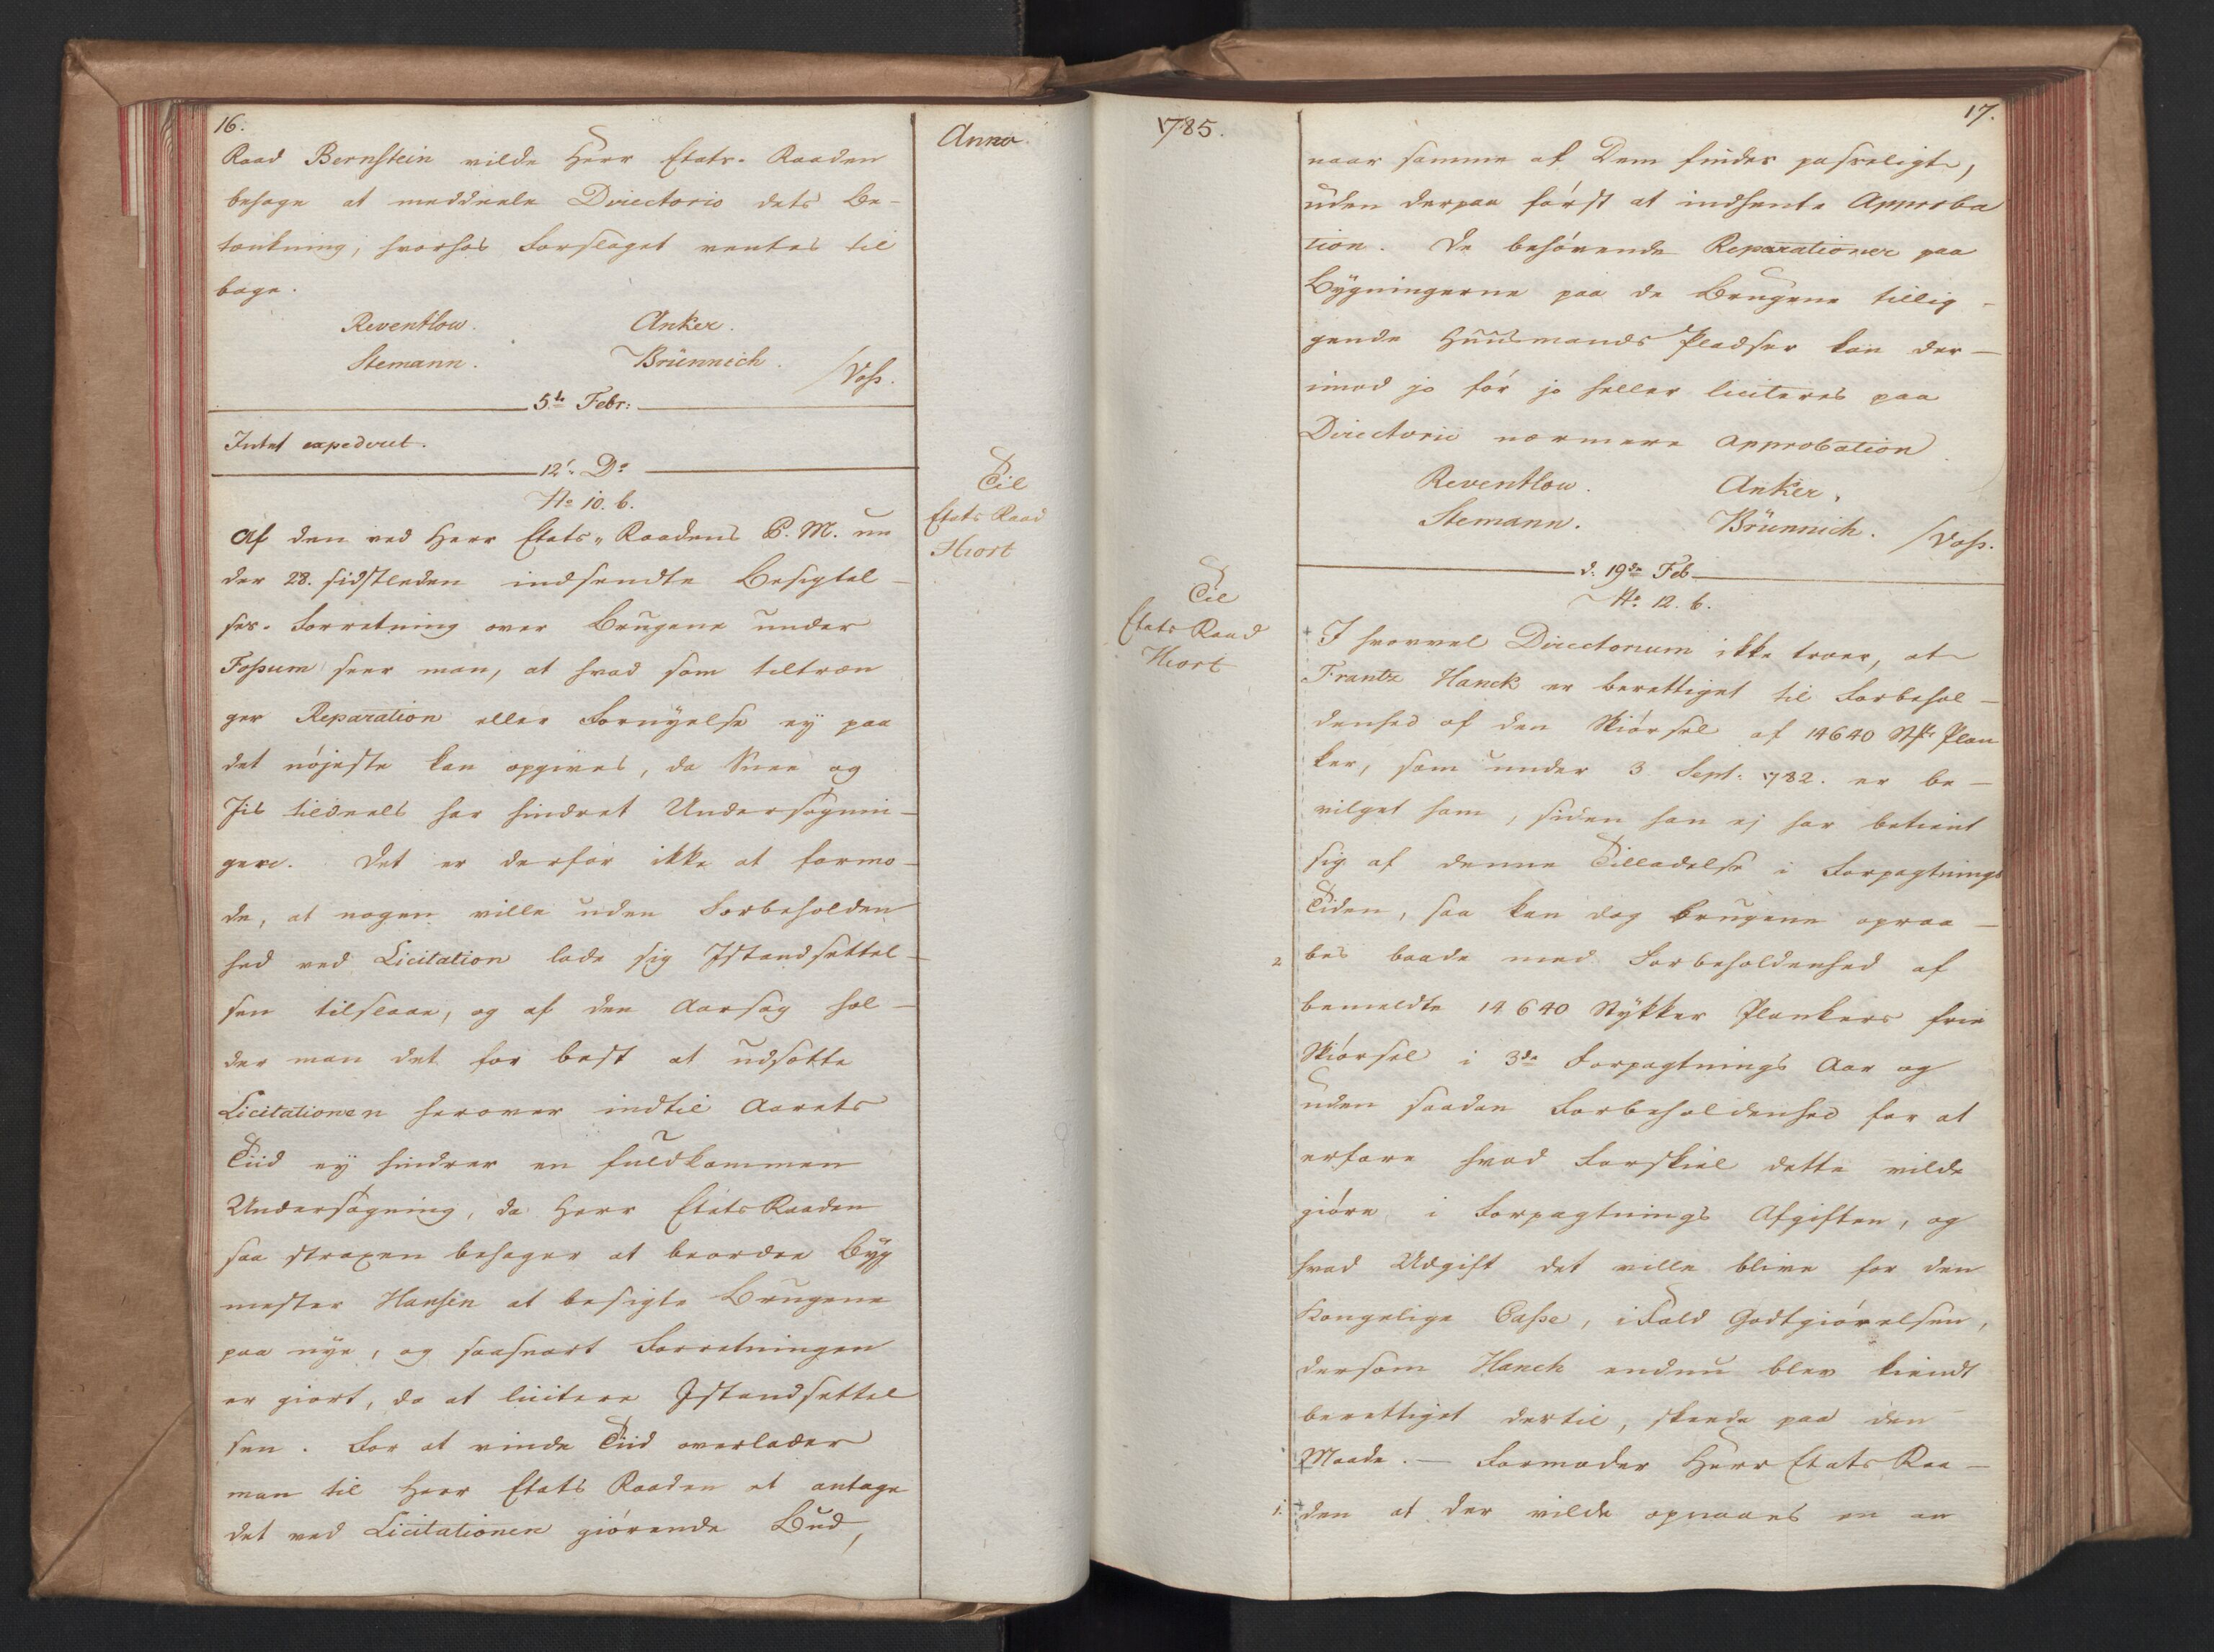 16.
Anno
Raad Bernstein vilde Herr Etats-Raaden
behage at meddeele Directorio dets Be-
tænkning, hvorhos Forslaget ventes til
bage.
Reventlow. Anker.
Stemann. Brünnich.
/Voss.
5te Febr:
Intet expederet.
12te Do
No 10. b.
Til
Etats Raad
Hiort
Af den ved Herr Etats-Raadens P. M. un
der 28. sidstleden indsendte Besigtel-
ses-Forretning over Brugene under
Fossum seer man, at hvad som tiltræn
ger Reparation eller Fornyelse ey paa
det nøjeste kan opgives, da Snee og
Jis tildeels har hindret Undersøgnin-
gen. Det er derfor ikke at formo-
de, at nogen ville uden Forbeholden
hed ved Licitation lade sig Istandsettel-
sen tilslaae, og af den Aarsag hol-
der man det for best at udsætte
Licitationen herover indtil Aarets
Tiid ey hindrer en fuldkommen
Undersøgning, da Herr Etats Raaden
saa straxen behager at beordre Byg
mester Hansen at besigte Brugene
paa nye, og saasnart Forretningen
er giort, da at licitere Istandsettel
sen. For at vinde Tiid overlader
man til Herr Etats Raaden at antage
det ved Licitationen giørende Bud,
1785.
17.
naar samme af Dem findes passeligt,
uden derpaa først at indhente Approba
tion. De behøvende Reparationer paa
Bygningerne paa de Brugene tillig-
gende Huusmands Pladser kan der-
imod jo før jo heller liciteres paa
Directorii nærmere Approbation.
Reventlow. Anker.
Stemann. Brünnich.
/Voss.
d. 19de Feb
No 12. b.
Til
Etats Raad
Hiort
I hvorvel Directorium ikke troer, at
Frantz Hanck er berettiget til Forbehol-
denhed af den Kiørsel af 14640 St. Plan
ker, som under 3 Sept: 1782. er be-
vilget ham, siden han ej har betient
sig af denne Tilladelse i Forpagtnings
Tiden, saa kan dog Brugene opraa-
2 bes baade med Forbeholdenhed af
bemeldte 14640 Stykker Plankers frie
Kiørsel i 3de Forpagtnings Aar og
uden saadan Forbeholdenhed for at
erfare hvad Forskiel dette vilde
giøre i Forpagtnings Afgiften, og
hvad Udgift det ville blive for den
Kongelige Casse, i Fald Godtgiørelsen,
dersom Hanck endnu blev kiendt
berettiget dertil, skeede paa den
Maade. — Formoder Herr Etats Raa-
1. den at der vilde opnaaes en an